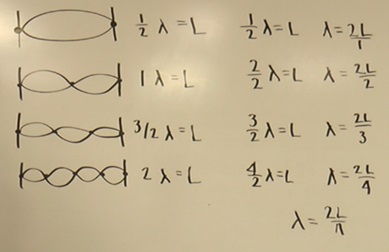 1/2 λ = L   1/2 λ = L   λ = 2L/1
1 λ = L   2/2 λ = L   λ = 2L/2
3/2 λ = L   3/2 λ = L   λ = 2L/3
2 λ = L   4/2 λ = L   λ = 2L/4
λ = 2L/n